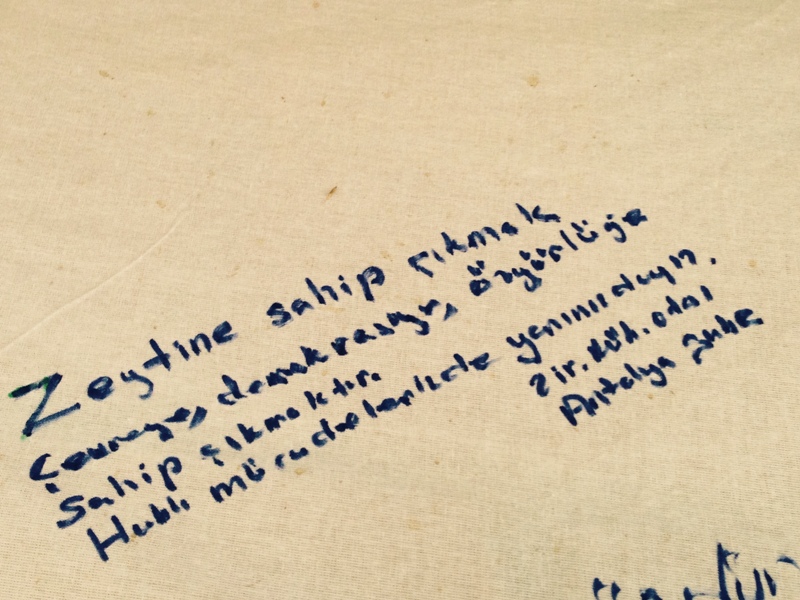 Zeytine sahip çıkmak
Çevreye, demokrasiye, özgürlüğe
sahip çıkmaktır.
Haklı mücadelenizde yanınızdayız.
Zir. Müh. odası
Antalya Şube